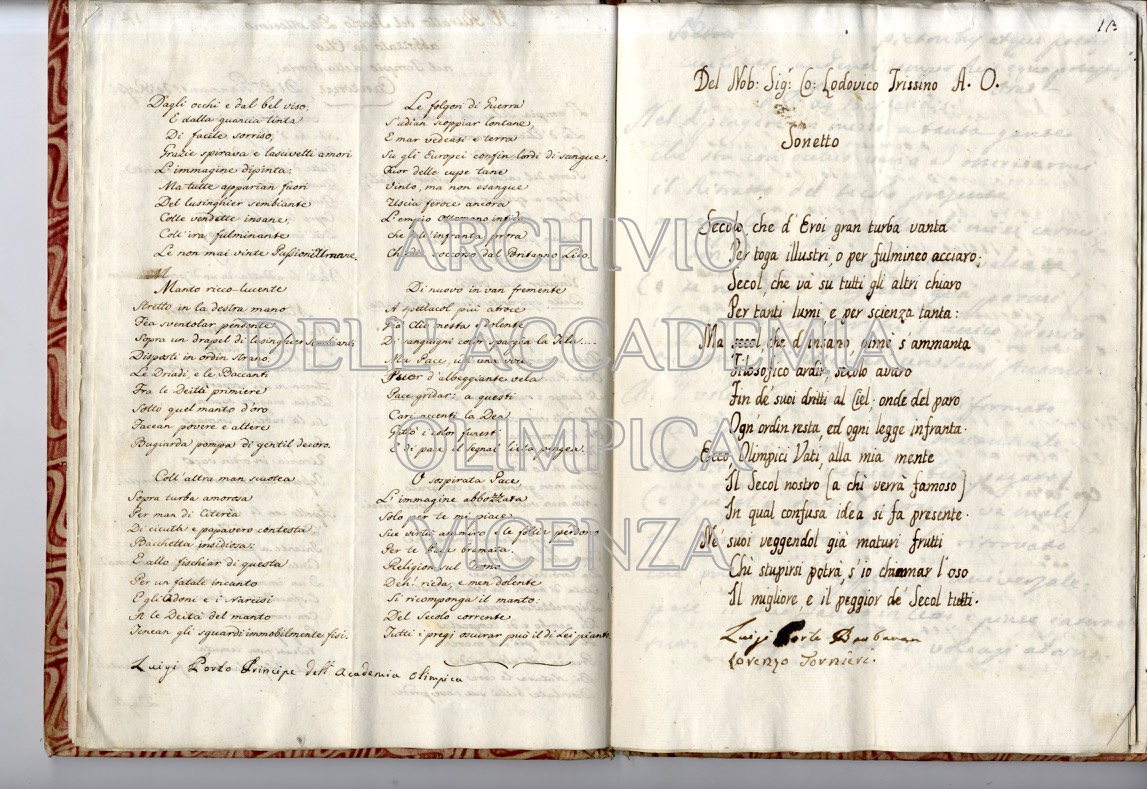 Dagli occhi e dal bel viso,
E dalla guancia tinta
Di facile sorriso,
Grazie spirava e lascivetti amori
L'immagine dipinta:
Ma tutte apparian fuori
Del lusinghier sembiante
Colle vendette insane,
Coll'ira fulminante
Le non mai vinte Passioni Umane.
Manto ricco-lucente
Stretto in la destra mano
Fea sventolar pendente
Sopra un drapel di lusinghier
Disposti in ordin strano,
Le Driadi, e le Baccanti
Fra le Deità primiere
Sotto quel manto d'oro
Facean povere e altere
Bugiarda pompa di gentil decoro.
Coll'altra man scuotea
Sopra turba amorosa
Per man di Citerea
Di cicuta e papavero contesta
Bacchetta insidiosa:
E allo fischiar di questa
Per un fatale incanto
Egli Adoni e i Narcisi
In le Deità del manto
Tenean gli sguardi immobilmente fisi.
Luigi Porto Principe dell'Academia Olimpica
Le folgori di Guerra
S'udian scoppiar lontane,
E mar vedeasi e terra
Su gli Europei confin lordi di sangue.
Fuor delle cupe tane
Vinto, ma non esangue
Uscia feroce ancora
L'empio Ottomano infido
che all'infranta prora
soccorso dal Britanno Lido.
Di nuovo in van fremente
A spettacol più atroce
Già Clio mesta e dolente
Di sanguigni color spargea la Tela....
Ma Pace, in una voce
Fuor d'albeggiante vela
Pace gridar: a questi
Cari accenti la Dea
Gittò i color funesti
E di pace il segnal lieta pingea.
O sospirata Pace,
L'immagine abbozzata
Solo per te mi piace
Sue virtù ammiro, le follie perdono
Per te bella bramata.
Religion sul Trono
Deh! rieda, e men dolente
Si ricomponga il manto:
Del Secolo corrente
Tutti i pregi oscurar può il di Lei pianto.
113
Del Nob: Sig.r Co: Lodovico Trissino A. O.
Sonetto
Secolo, che d'Eroi gran turba vanta
Per toga illustri, o per fulmineo acciaro;
Secol, che và su tutti gli altri chiaro
Per tanti lumi e per scienza tanta:
Ma secol, che d'insano, oimè s'ammanta
Filosofico ardir, secolo avaro
Fin de' suoi dritti al Ciel; onde del paro
Ogn'ordin resta, ed ogni legge infranta.
Ecco Olimpici Vati, alla mia mente
Il Secol nostro (a chi verrà famoso)
In qual confusa idea si fa presente.
Nè suoi veggendol già maturi frutti
Chi stupirsi potrà s'io chiamar l'oso
Il migliore, e il peggior de' Secol tutti.
Luigi Porto Barbaran
Lorenzo Tornieri.
ARCHIVIO
DELL'ACCADEMIA
OLIMPICA
VICENZA